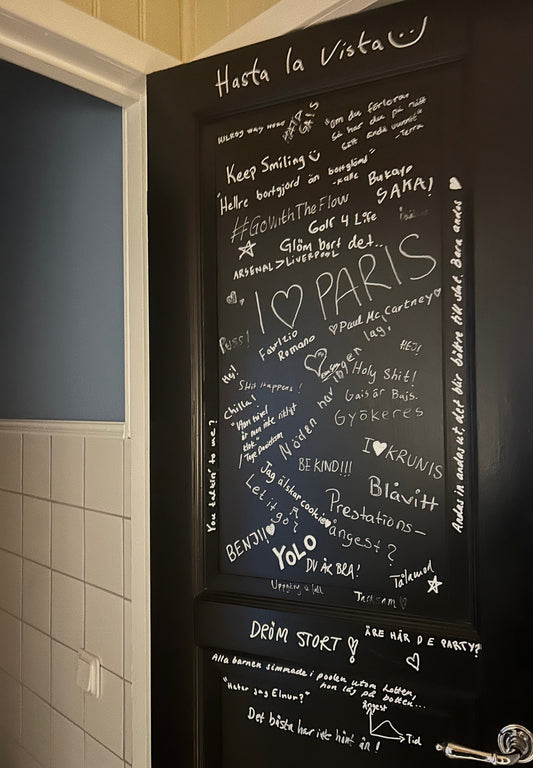 Hasta la Vista
KILROY WAY HERE
"om du förlorar
så har du på nått
sätt ändå vunnit"
-Terra
Keep Smiling
"Hellre bortgjord än bortglömd"
-Kalle
Bukayo
SAKA!
#GoWithTheFlow
Golf 4 Life
Glöm bort det...
ARSENAL > LIVERPOOL
I ♡ PARIS
♡Paul McCartney♡
Puss!
Fabrizio
Romano
HEJ!
Hej!
Nöden har ingen lag.
Holy Shit!
Shit happens!
Gais är Bajs.
Chilla!
Gyökeres
"Utan tvivel
är man inte riktigt
klok"
/Tage Danielsson
You talkin' to me?
I ♥ KRUNIS
BE KIND!!!
Jag älskar cookie♥
Blåvitt
Let it go
Prestations-
ångest?
BENJI♥
YOLO
DU ÄR BRA!
Tålamod
Andas in andas ut det blir bättre till slut. Bara andas ♥
DRÖM STORT!
ÄRE HÄR DE PARTY?
Alla barnen simmade i poolen utom Lotten,
hon låg på botten...
"Heter jag Elnur?"
Det bästa har inte hänt än!
Ångest
Tid